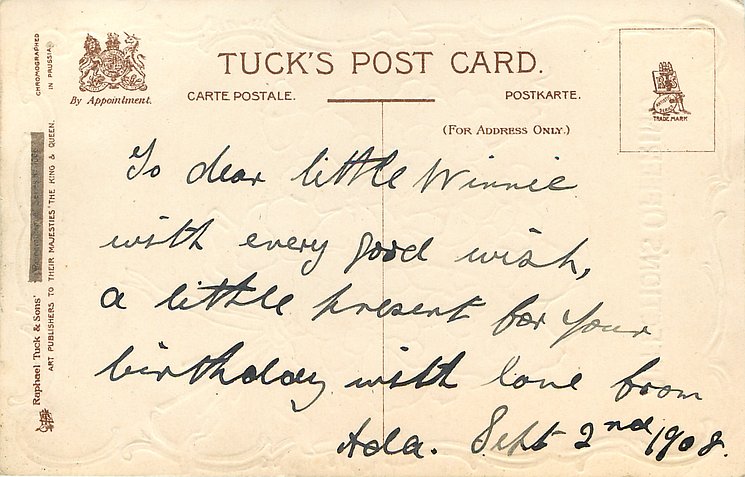 TUCK'S POST CARD.
By Appointment.
CARTE POSTALE.
POSTKARTE.
(FOR ADDRESS ONLY.)
TRADE MARK
CHROMOGRAPHED
IN PRUSSIA
Raphael Tuck & Sons'
ART PUBLISHERS TO THEIR MAJESTIES THE KING & QUEEN.
To dear little Winnie
with every good wish,
a little present for your
birthday with love from
Ada. Sept 2nd 1908.